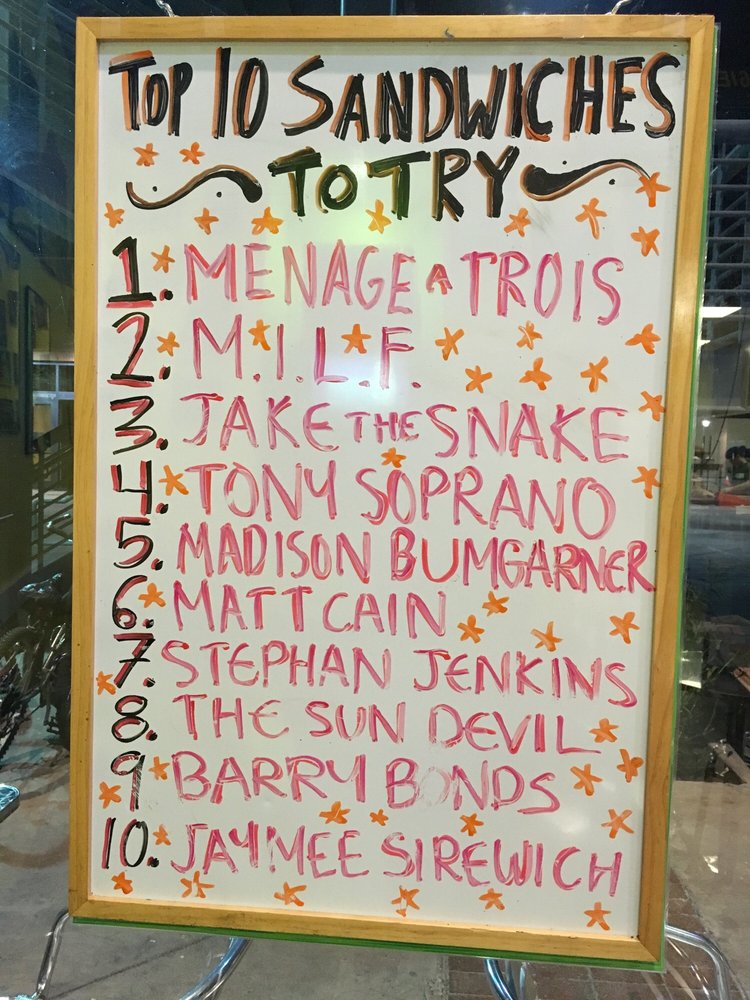 TOP 10 SANDWICHES
TO TRY
1. MENAGE A TROIS
2. M.I.L.F.
3. JAKE THE SNAKE
4. TONY SOPRANO
5. MADISON BUMGARNER
6. MATT CAIN
7. STEPHAN JENKINS
8. THE SUN DEVIL
9 BARRY BONDS
10. JAYMEE SIREWICH